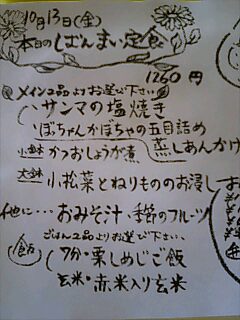 10月13日(金)
本日のしばんまい定食
1260円
メイン2品よりお選び下さい
サンマの塩焼き
ぼっちゃんかぼちゃの五目詰め
蒸しあんかけ
小鉢 かつおしょうが煮
大鉢 小松菜とねりもののお浸し
他に…おみそ汁・季節のフルーツ
ごはん2品よりお選び下さい、
飯 7分・栗しめじご飯
玄米・赤米入り玄米